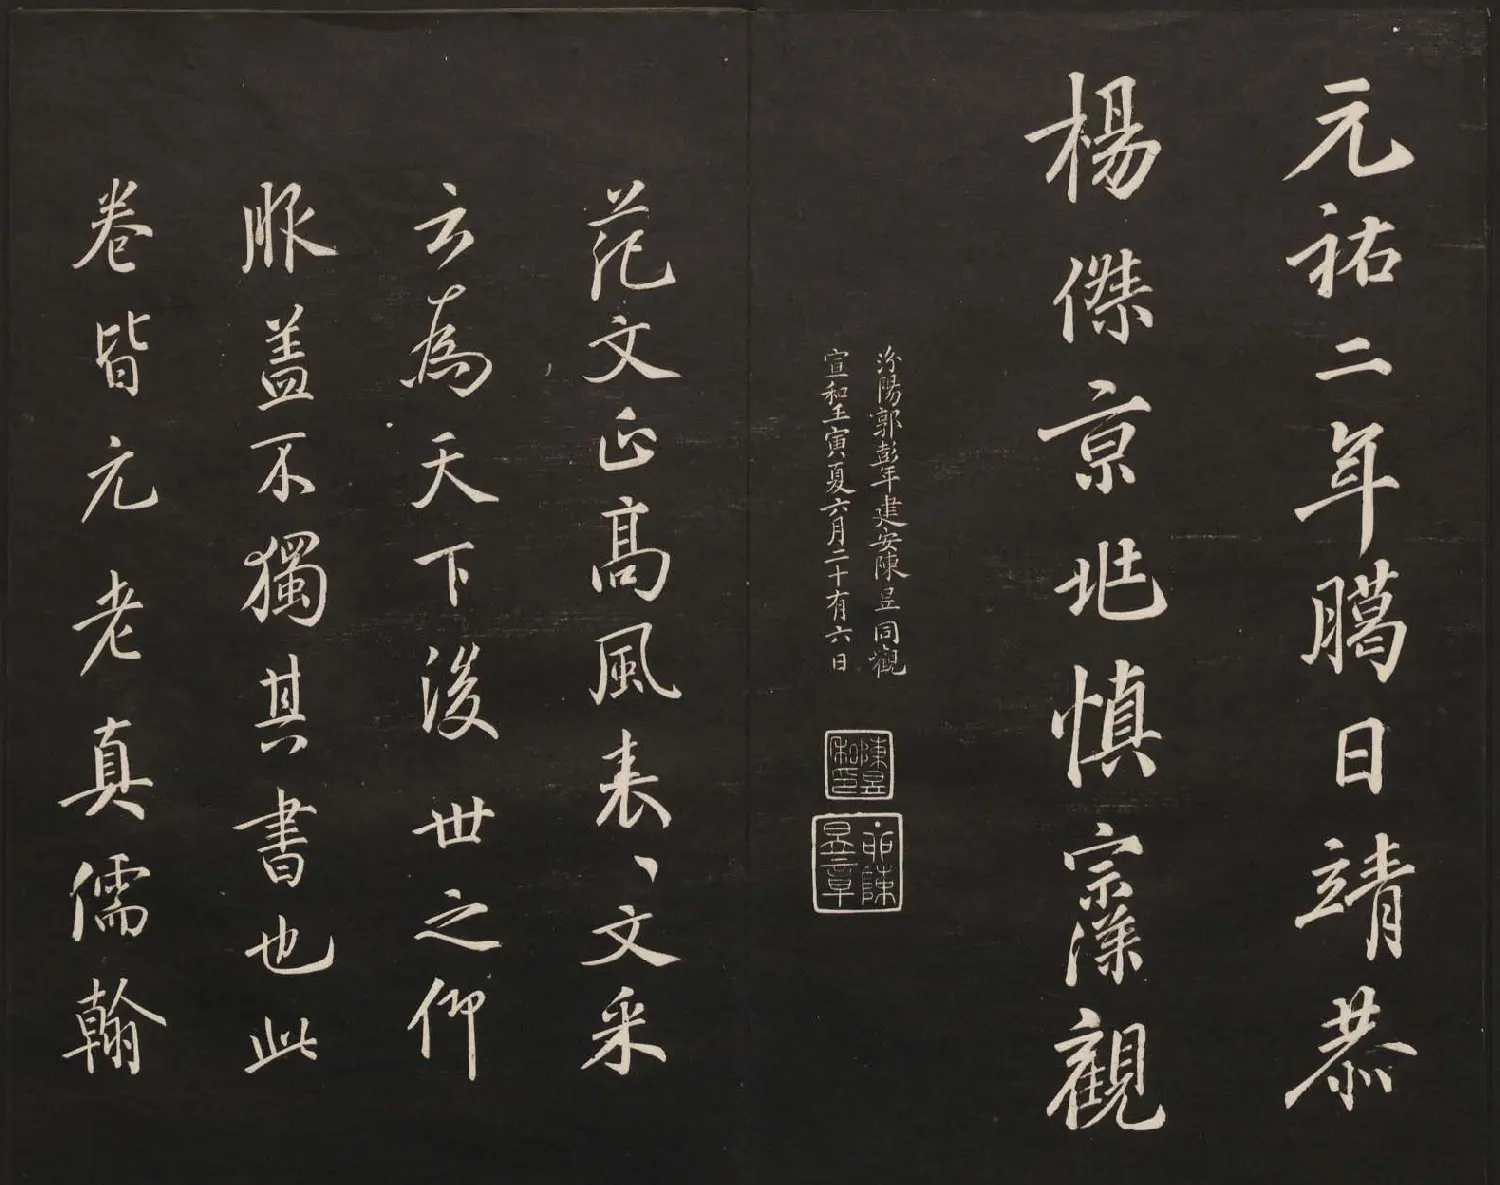 元祐二年臈日靖恭
楊傑京兆慎宗深觀
汾陽郭彭年建安陳昱同觀
宣和壬寅夏六月二十有六日
范文正高風表、文采
云為天下後世之仰
服盖不獨其書也此
卷皆元老真儒翰